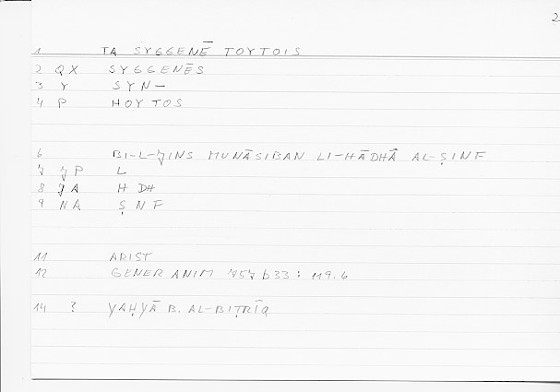 2
1 TA SYGGENĒ TOYTOIS
2 QX SYGGENĒS
3 Y SYN-
4 P HOYTOS
6 BI-L-ǦINS MUNĀSIBAN LI-HĀDHĀ AL-ṢINF
7 P L
8 A H DH
9 NA ṢNF
11 ARIST
12 GENER ANIM 757 b33 : 119.6
14 ? YAḤYĀ B. AL-BIṬRĪQ